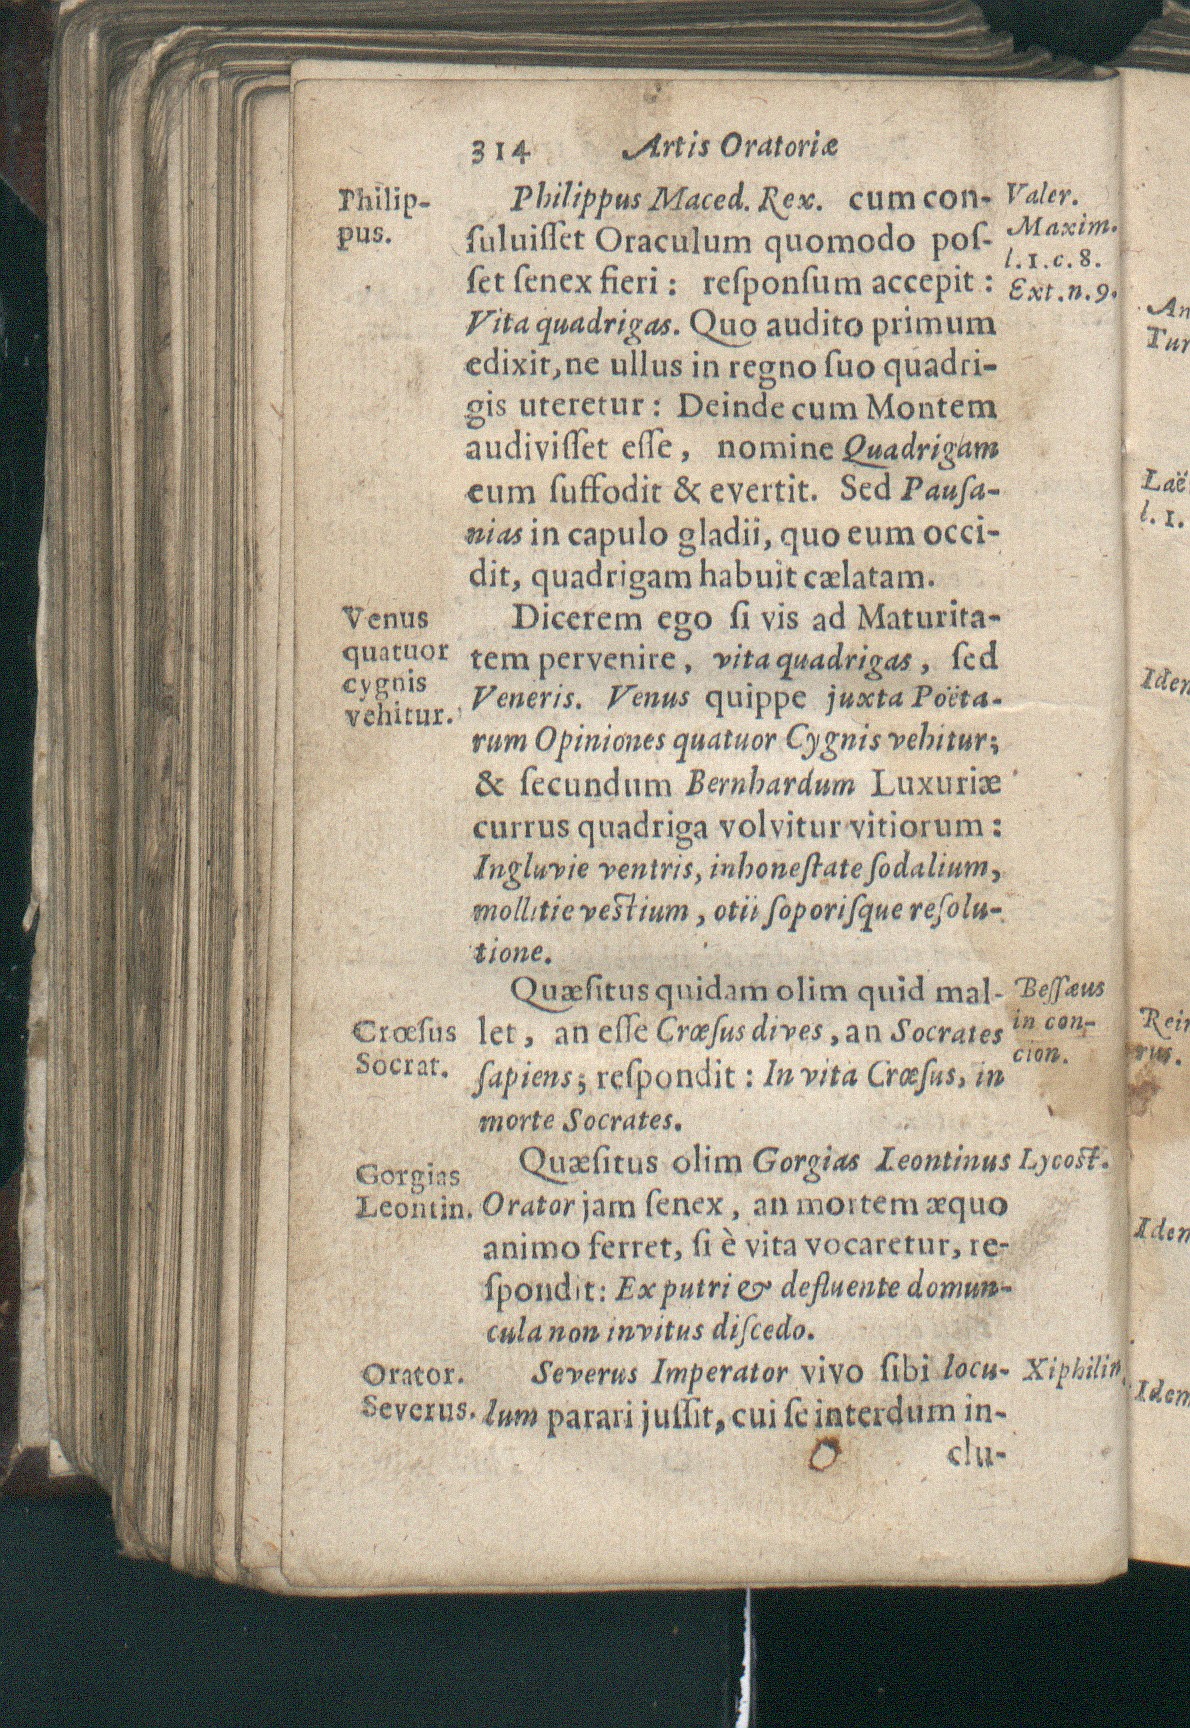 314 Artis Oratoriæ
Philip-
pus.
Philippus Maced. Rex. cum con-
ſuluiſſet Oraculum quomodo poſ-
ſet ſenex fieri : reſponſum accepit :
Vita quadrigas. Quo audito primum
edixit, ne ullus in regno ſuo quadri-
gis uteretur : Deinde cum Montem
audiviſſet eſſe, nomine Quadrigam
eum ſuffodit & evertit. Sed Pauſa-
nias in capulo gladii, quo eum occi-
dit, quadrigam habuit cælatam.
Valer.
Maxim.
l. 1. c. 8.
Ext. n. 9.
Venus
quatuor
cygnis
vehitur.
Dicerem ego ſi vis ad Maturita-
tem pervenire, vita quadrigas, ſed
Veneris. Venus quippe juxta Poëta-
rum Opiniones quatuor Cygnis vehitur;
& ſecundum Bernhardum Luxuriæ
currus quadriga volvitur vitiorum :
Ingluvie ventris, inhoneſtate ſodalium,
mollitie veſtium, otii ſoporiſque reſolu-
tione.
Crœſus
Socrat.
Quæſitus quidam olim quid mal-
let, an eſſe Crœſus dives, an Socrates
ſapiens; reſpondit : In vita Crœſus, in
morte Socrates.
Beſſæus
in con-
cion.
Gorgias
Leontin.
Quæſitus olim Gorgias Leontinus
Orator jam ſenex, an mortem æquo
animo ferret, ſi è vita vocaretur, re-
ſpondit : Ex putri & defluente domun-
cula non invitus diſcedo.
Lycoſt.
Orator.
Severus.
Severus Imperator vivo ſibi locu-
lum parari juſſit, cui ſe interdum in-
Xiphilin
clu-
An
Tur
Laë
l. 1.
Iden
Rein
rus.
Iden
Idem